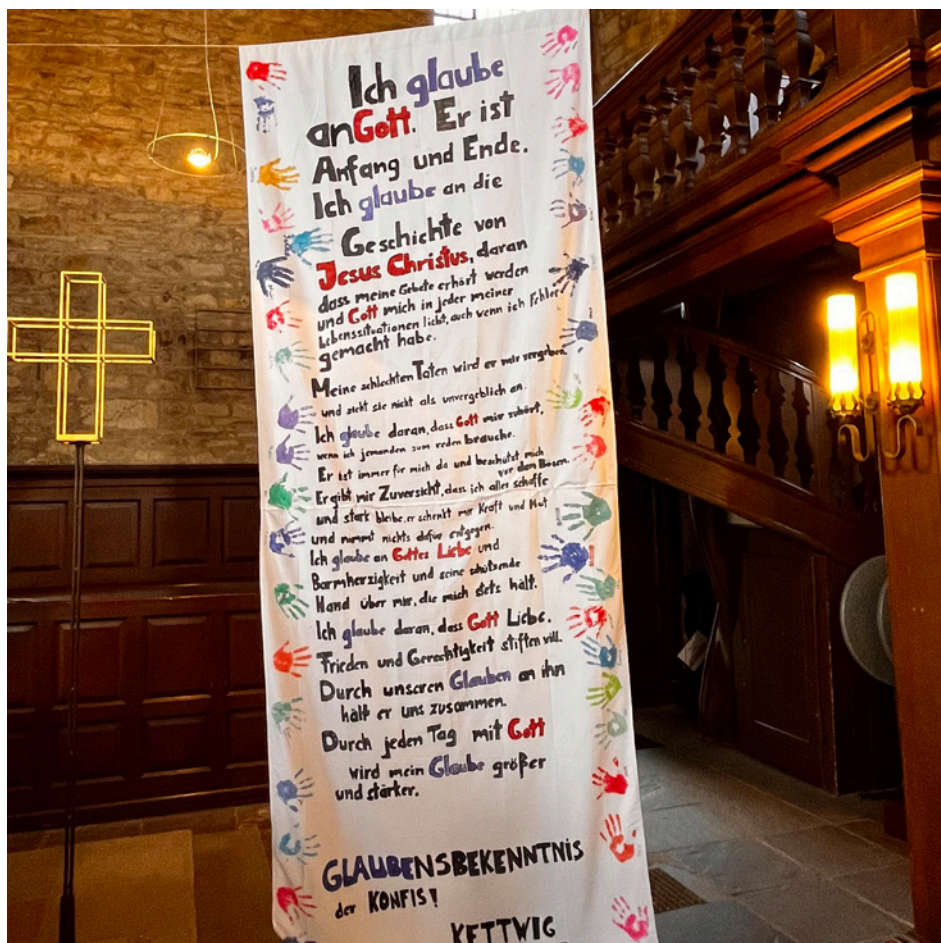 Ich glaube
an Gott. Er ist
Anfang und Ende.
Ich glaube an die
Geschichte von
Jesus Christus, daran
dass meine Gebete erhört werden
und Gott mich in jeder meiner
Lebenssituationen liebt, auch wenn ich Fehler
gemacht habe.
Meine schlechten Taten wird er mir vergeben
und sieht sie nicht als unvergeblich an.
Ich glaube daran, dass Gott mir zuhört,
wenn ich jemanden zum reden brauche.
Er ist immer für mich da und beschützt mich
vor dem Bösen.
Er gibt mir Zuversicht, dass ich alles schaffe
und stark bleibe, er schenkt mir Kraft und Mut
und nimmt nichts dafür entgegen.
Ich glaube an Gottes Liebe und
Barmherzigkeit und seine schützende
Hand über mir, die mich stets hält.
Ich glaube daran, dass Gott Liebe,
Frieden und Gerechtigkeit stiften will.
Durch unseren Glauben an ihn
hält er uns zusammen.
Durch jeden Tag mit Gott
wird mein Glaube größer
und stärker.
GLAUBENSBEKENNTNIS
der KONFIS!
KETTWIG